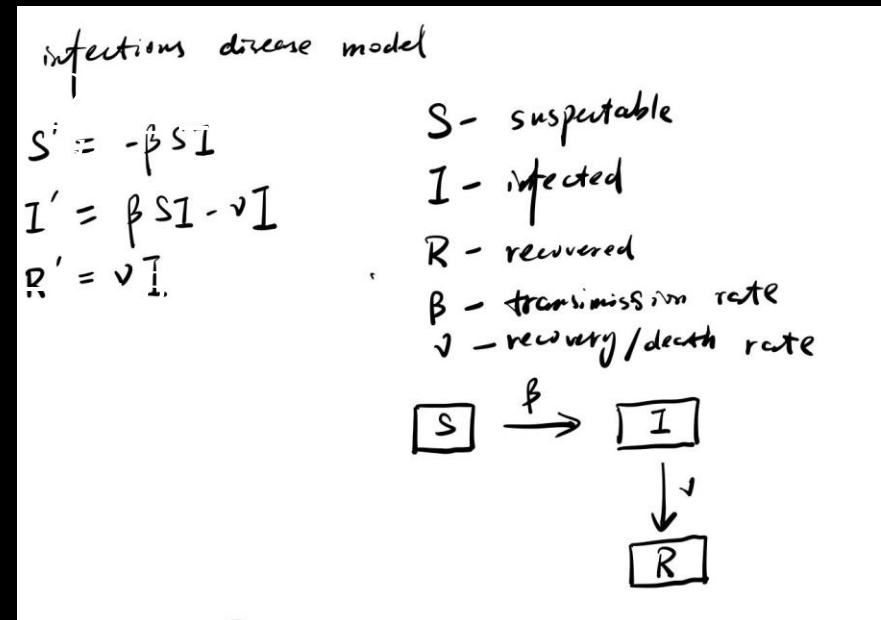 infections disease model
S' = -βSI
I' = βSI - νI
R' = νI
S - suspectable
I - infected
R - recovered
β - transimission rate
ν - recovery/death rate
S β I
ν
R